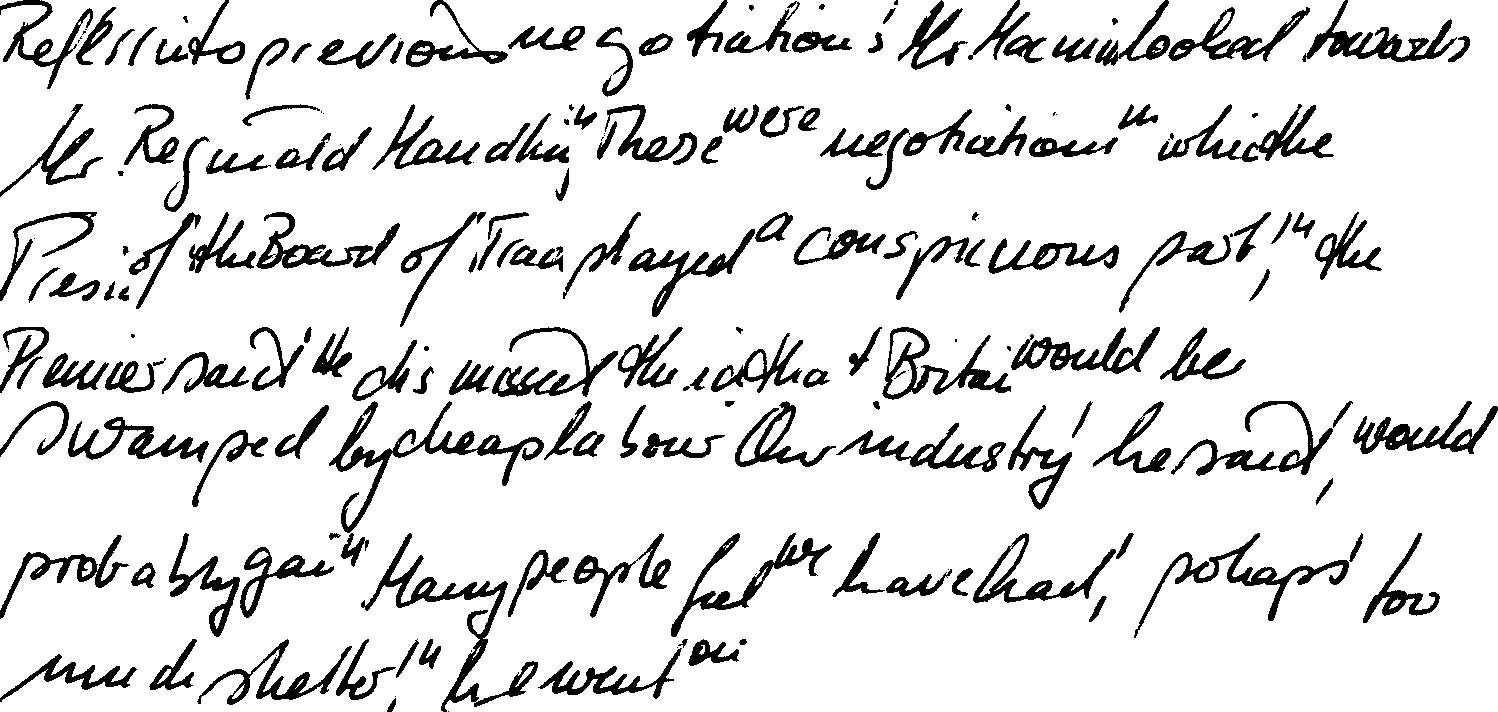 Referring to previous negotiations Mr. Macmillan looked towards
Mr. Reginald Maudling, "These were negotiations in which the
President of the Board of Trade played a conspicuous part," the
Premier said. He dismissed the idea that Britain would be
swamped by cheap labour. Our industry, he said, would
probably gain. "Many people feel we have had, perhaps, too
much shelter," he went on